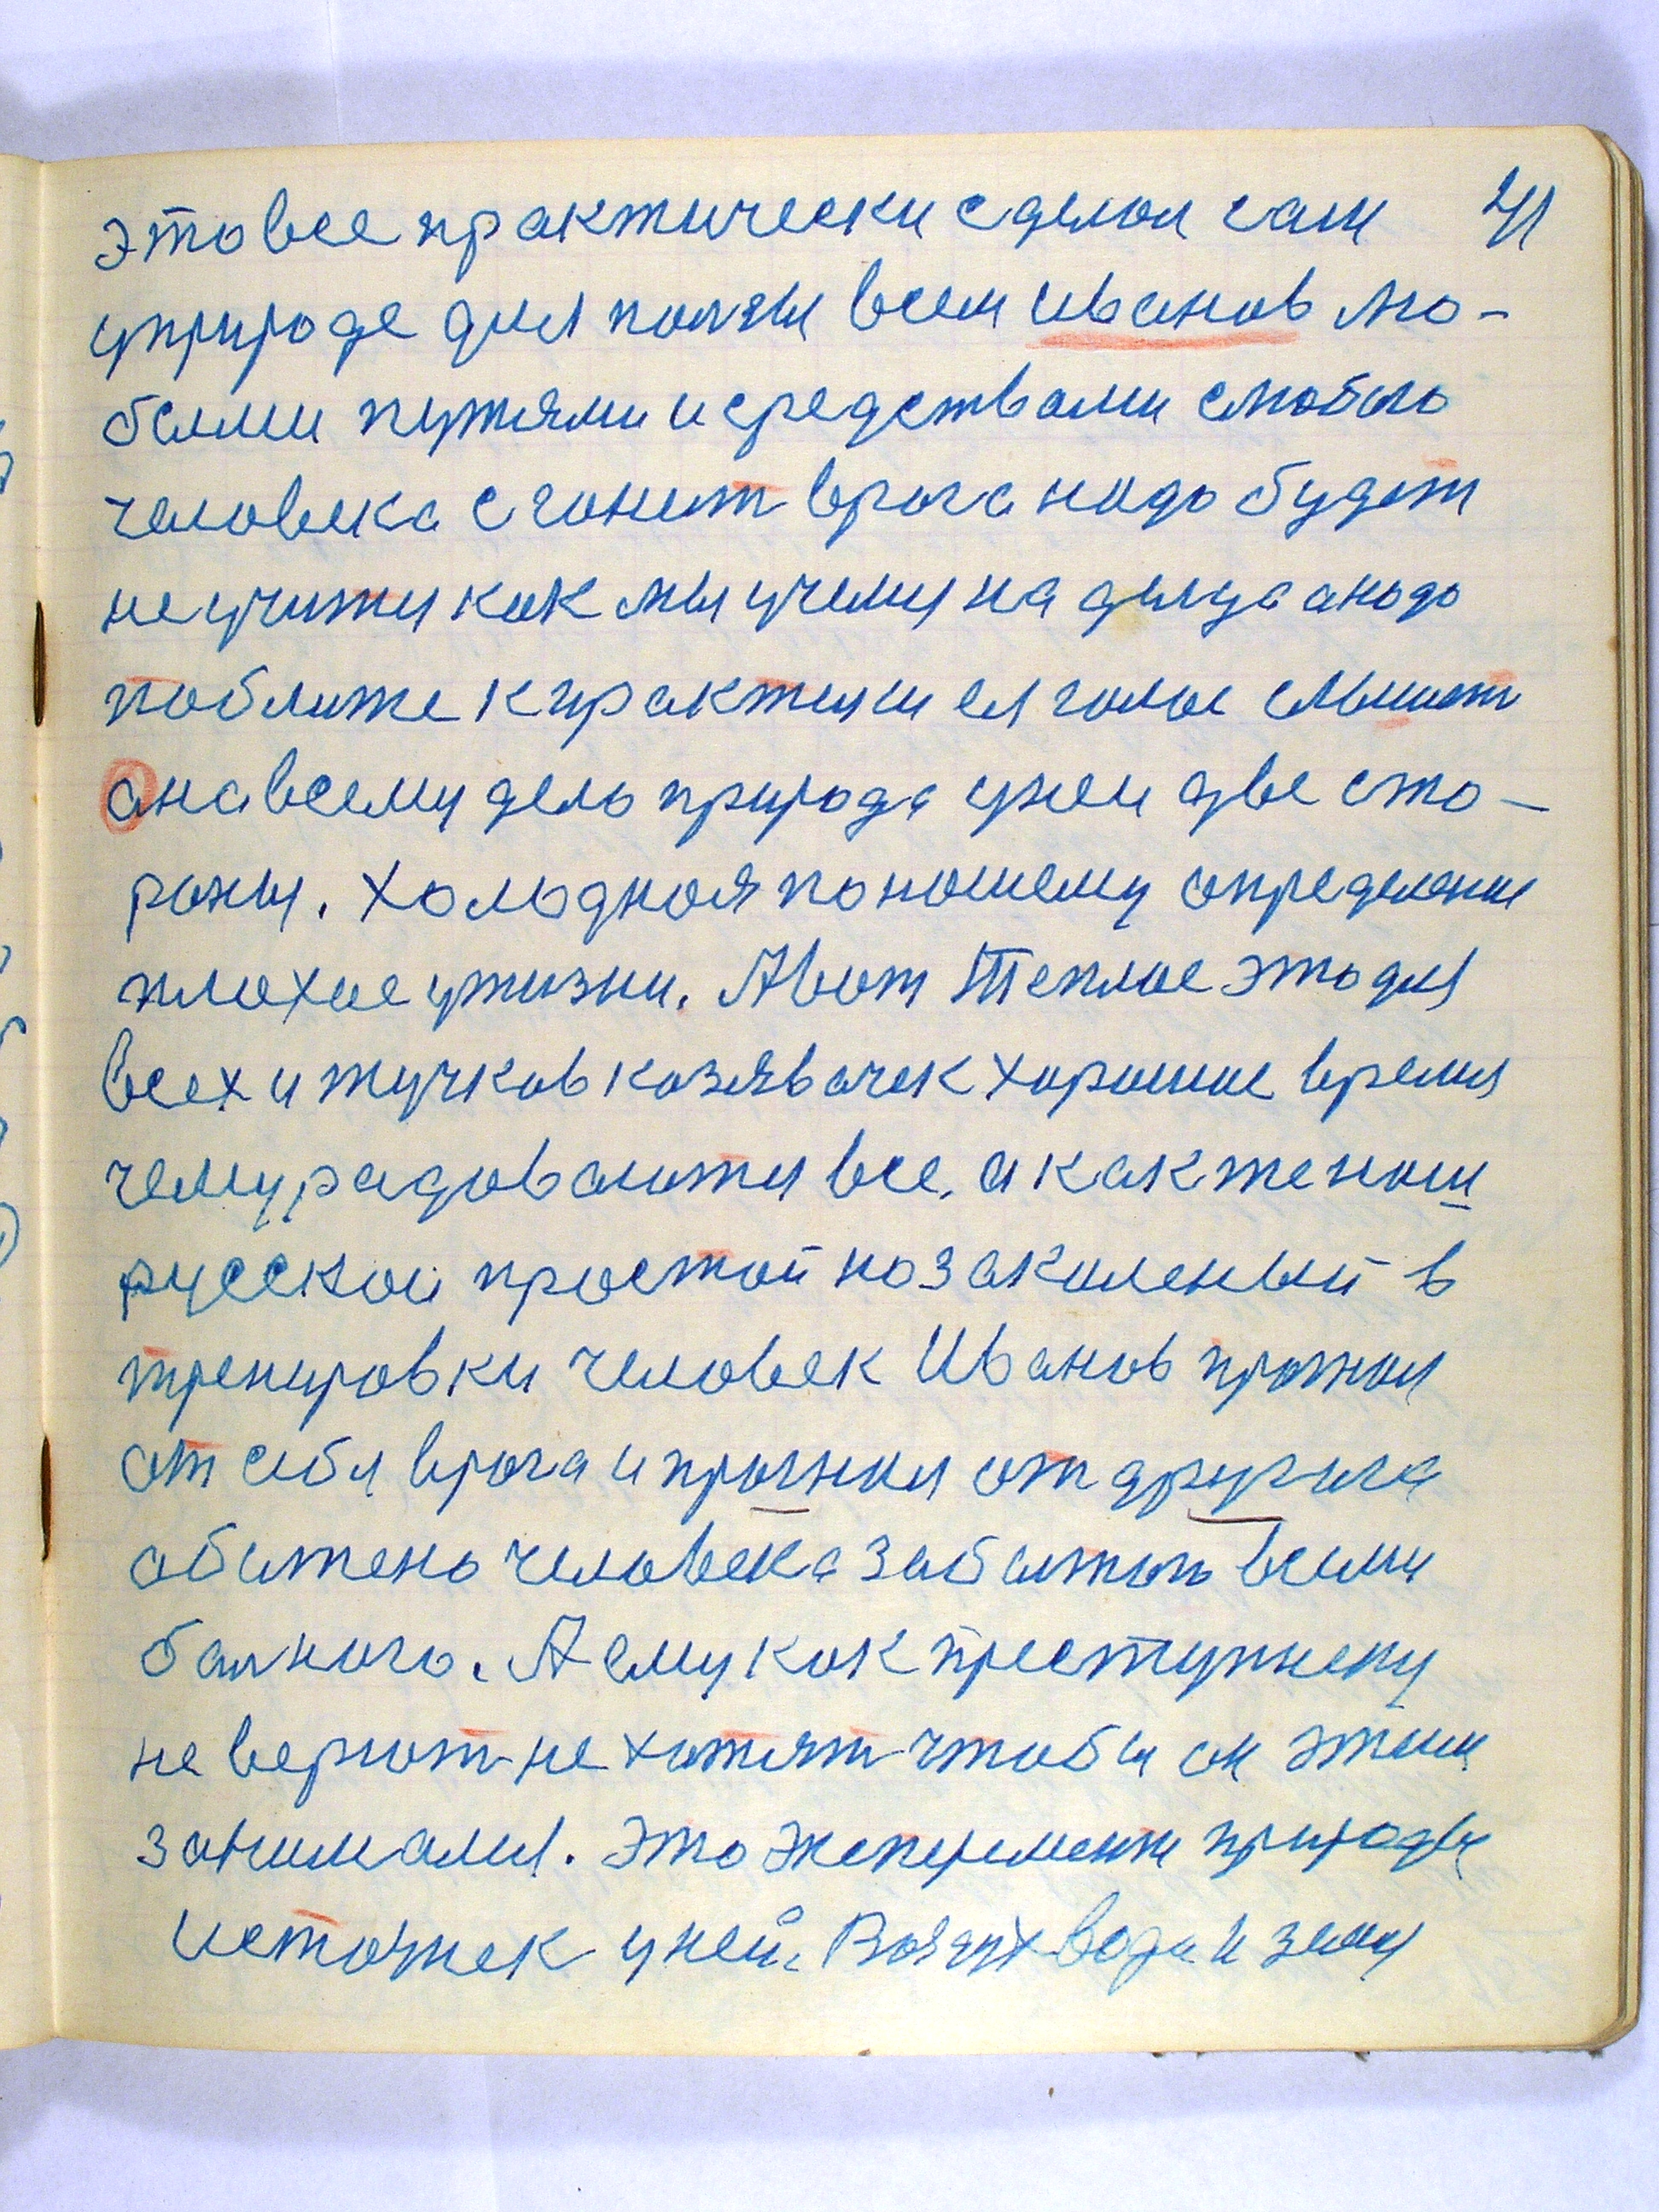 это все практически сделал сам 41
уприроде для ползы всем Иванов лю-
быми путями и средствами слюбого
человека сгонит врага надо будет
неучится как мы учемся на дядуа анодо
поближе кпрактики ея голос слышит
она всему дело природа уней две сто-
роны. Холодная понашему определение
плохое ужизни. А вот Теплое это для
всех и жучков козявачек хорошое время
чему радоваются все, а как же наш
русской простой но закаленый в
тренировки человек Иванов прогнал
от себя врага и прогнал от другога
обижено человека забытого всеми
балного. А ему как преступнеку
не верют не хотят чтобы он этим
занимался. Это эксперемент природа
источнек уней. Воздух вода и земля